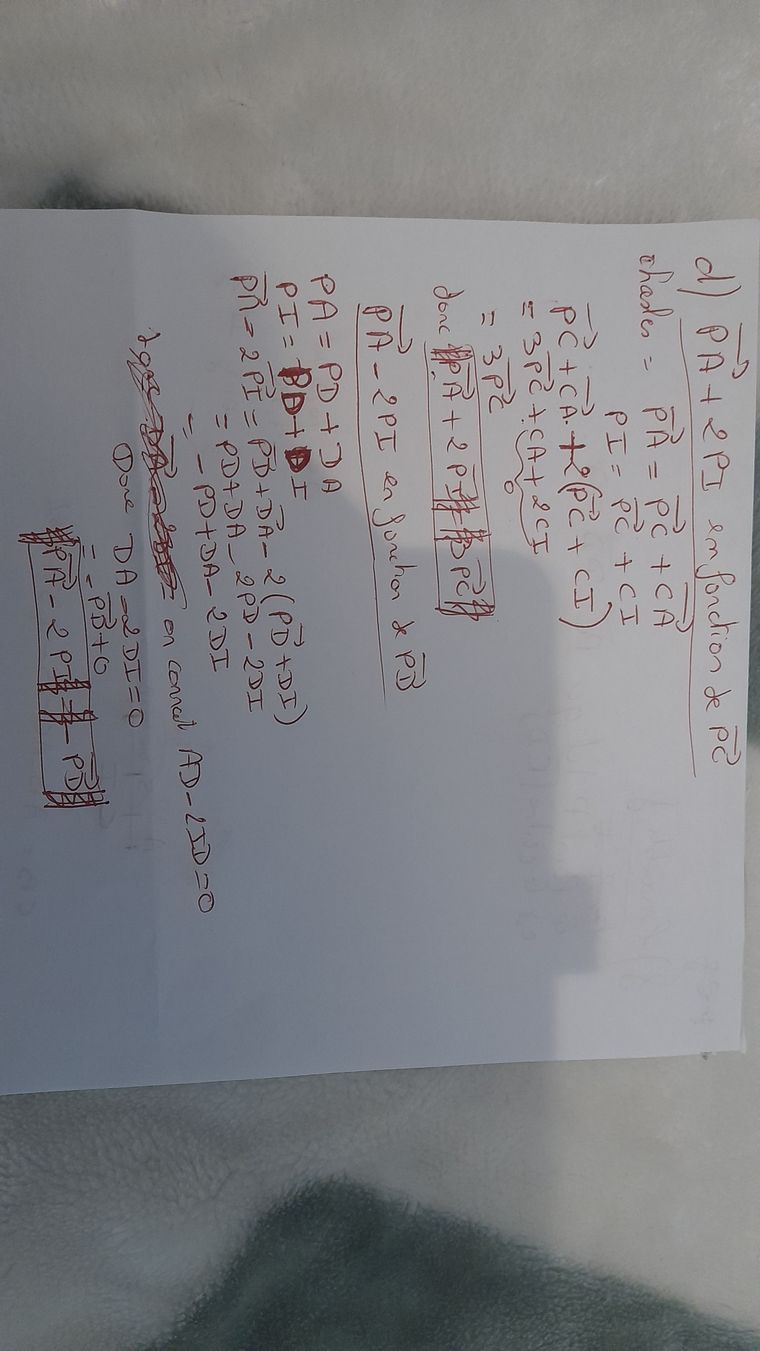 d) PA + 2PI en fonction de PC
chasles = PA = PC + CA
PI = PC + CI
PC + CA + 2(PC + CI)
= 3PC + CA + 2CI
0
= 3PC
donc PA + 2PI = 3PC
PA - 2PI en fonction de PD
PA = PD + DA
PI = PD + DI
PA = 2PI = PD + DA - 2(PD + DI)
= PD + DA - 2PD - 2DI
= - PD + DA - 2DI
on connait AD - 2ID = 0
Donc DA - 2DI = 0
= - PD + 0
PA - 2PI = - PD